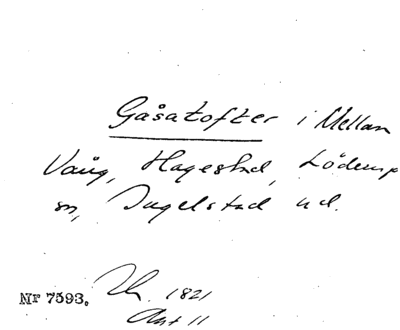 Gåsatofter i Mellan
Vång, Hagestad, Löderup
sn, Ingelstad hd.
Nr 7593. 1821
Akt 11